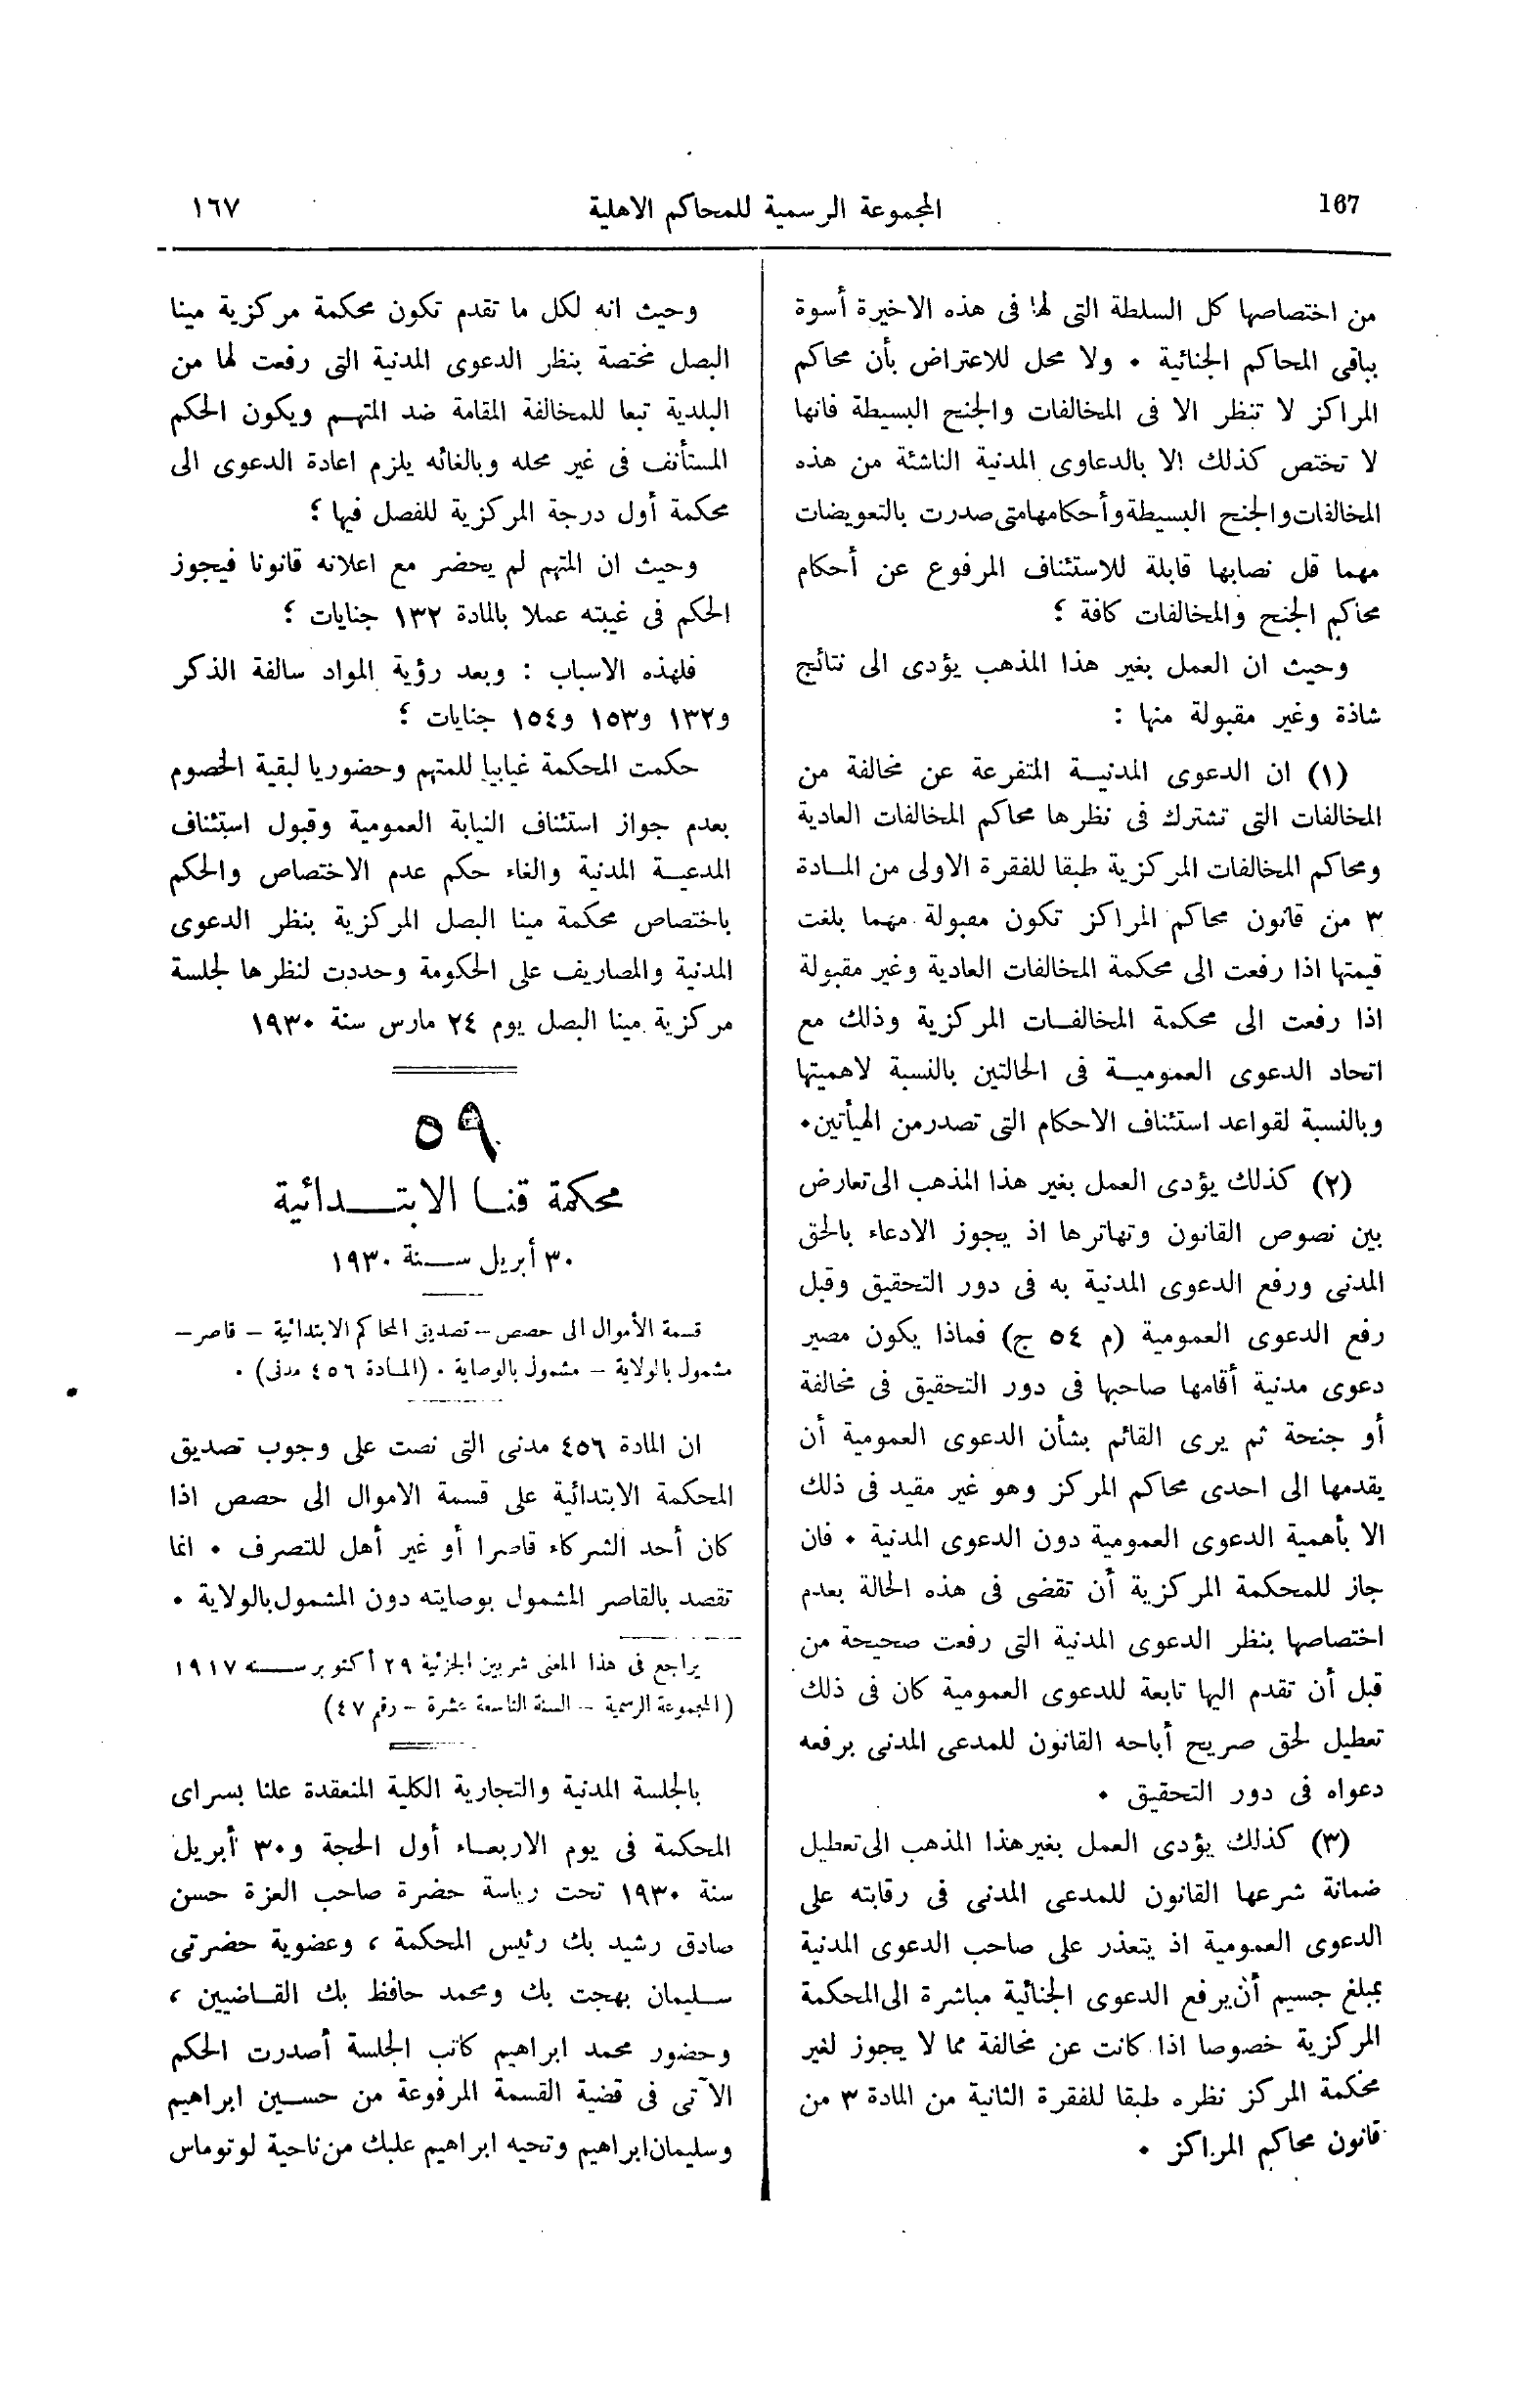 167
المجموعة الرسمية للمحاكم الاهلية
١٦٧
من اختصاصها كل السلطة التى لها فى هذه الاخيرة أسوة
بباقى المحاكم الجنائية . ولا محل للاعتراض بأن محاكم
المراكز لا تنظر الا فى المخالفات والجنح البسيطة فانها
لا تختص كذلك الا بالدعاوى المدنية الناشئة من هذه
المخالفات والجنح البسيطة وأحكامها متى صدرت بالتعويضات
مهما قل نصابها قابلة للاستئناف المرفوع عن أحكام
محاكم الجنح والمخالفات كافة ؛
وحيث ان العمل بغير هذا المذهب يؤدى الى نتائج
شاذة وغير مقبولة منها :
(١) ان الدعوى المدنيـة المتفرعة عن مخالفة من
المخالفات التى تشترك فى نظرها محاكم المخالفات العادية
ومحاكم المخالفات المركزية طبقا للفقرة الاولى من المـادة
٣ من قانون محاكم المراكز تكون مقبولة مهما بلغت
قيمتها اذا رفعت الى محكمة المخالفات العادية وغير مقبولة
اذا رفعت الى محكمة المخالفـات المركزية وذلك مع
اتحاد الدعوى العموميـة فى الحالتين بالنسبة لاهميتها
وبالنسبة لقواعد استئناف الاحكام التى تصدر من الهيأتين.
(٢) كذلك يؤدى العمل بغير هذا المذهب الى تعارض
بين نصوص القانون وتهاترها اذ يجوز الادعاء بالحق
المدنى ورفع الدعوى المدنية به فى دور التحقيق وقبل
رفع الدعوى العمومية (م ٥٤ ج) فماذا يكون مصير
دعوى مدنية أقامها صاحبها فى دور التحقيق فى مخالفة
أو جنحة ثم يرى القائم بشأن الدعوى العمومية أن
يقدمها الى احدى محاكم المركز وهو غير مقيد فى ذلك
الا بأهمية الدعوى العمومية دون الدعوى المدنية . فان
جاز للمحكمة المركزية أن تقضى فى هذه الحالة بعدم
اختصاصها بنظر الدعوى المدنية التى رفعت صحيحة من
قبل أن تقدم اليها تابعة للدعوى العمومية كان فى ذلك
تعطيل لحق صريح أباحه القانون للمدعى المدنى برفعه
دعواه فى دور التحقيق .
(٣) كذلك يؤدى العمل بغير هذا المذهب الى تعطيل
ضمانة شرعها القانون للمدعى المدنى فى رقابته على
الدعوى العمومية اذ يتعذر على صاحب الدعوى المدنية
بمبلغ جسيم أن يرفع الدعوى الجنائية مباشرة الى المحكمة
المركزية خصوصا اذا كانت عن مخالفة مما لا يجوز لغير
محكمة المركز نظره طبقا للفقرة الثانية من المادة ٣ من
قانون محاكم المراكز .
وحيث انه لكل ما تقدم تكون محكمة مركزية مينا
البصل مختصة بنظر الدعوى المدنية التى رفعت لها من
البلدية تبعا للمخالفة المقامة ضد المتهـم ويكون الحكم
المستأنف فى غير محله وبالغائه يلزم اعادة الدعوى الى
محكمة أول درجة المركزية للفصل فيها ؛
وحيث ان المتهم لم يحضر مع اعلانه قانونا فيجوز
الحكم فى غيبته عملا بالمادة ١٣٢ جنايات ؛
فلهذه الاسباب : وبعد رؤية المواد سالفة الذكر
و١٣٢ و١٥٣ و١٥٤ جنايات ؛
حكمت المحكمة غيابيا للمتهم وحضوريا لبقية الخصوم
بعدم جواز استئناف النيابة العمومية وقبول استئناف
المدعيـة المدنية والغاء حكم عدم الاختصاص والحكم
باختصاص محكمة مينا البصل المركزية بنظر الدعوى
المدنية والمصاريف على الحكومة وحددت لنظرها لجلسة
مركزية مينا البصل يوم ٢٤ مارس سنة ١٩٣٠
٥٩
محكمة قنـا الابتـــدائية
٣٠ أبريل سـنة ١٩٣٠
قسمة الأموال الى حصص – تصديق المحاكم الابتدائية – قاصر –
مشمول بالولاية – مشمول بالوصاية . (المـادة ٤٥٦ مدنى) .
ان المادة ٤٥٦ مدنى التى نصت على وجوب تصديق
المحكمة الابتدائية على قسمة الاموال الى حصص اذا
كان أحد الشركاء قاصرا أو غير أهل للتصرف . انما
تقصد بالقاصر المشمول بوصايته دون المشمول بالولاية .
يراجع فى هذا المعنى شربين الجزئية ٢٩ أكتوبر سـنه ١٩١٧
(المجموعة الرسمية – السنة التاسعة عشرة – رقم ٤٧)
بالجلسة المدنية والتجارية الكلية المنعقدة علنا بسراى
المحكمة فى يوم الاربعـاء أول الحجة و٣٠ أبريل
سنة ١٩٣٠ تحت رياسة حضرة صاحب العزة حسن
صادق رشيد بك رئيس المحكمة ، وعضوية حضرتى
سـليمان بهجت بك ومحمد حافظ بك القـاضيين ،
وحضور محمد ابراهيم كاتب الجلسة أصدرت الحكم
الآتى فى قضية القسمة المرفوعة من حسـين ابراهيم
وسليمان ابراهيم وتحيه ابراهيم عليك من ناحية لوتوماس